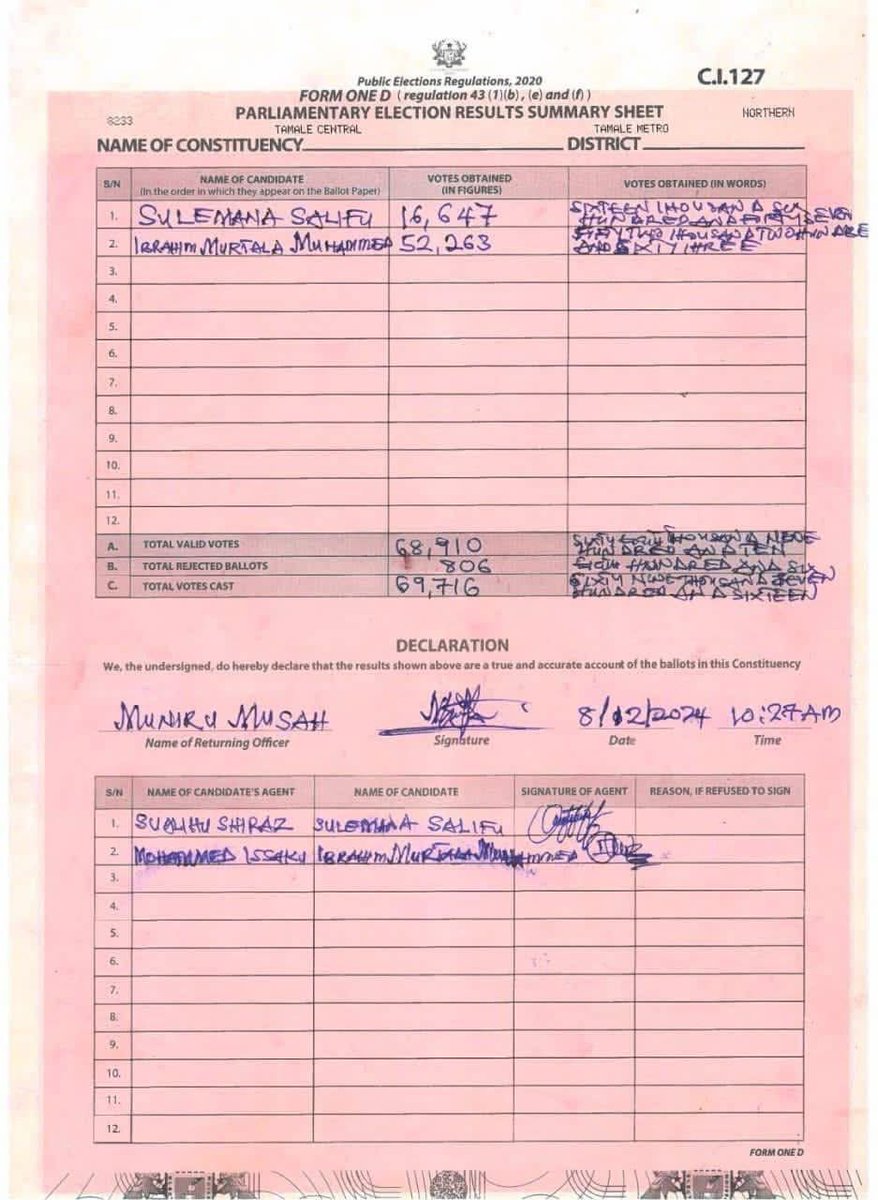 Public Elections Regulations, 2020
C.I.127
FORM ONE D ( regulation 43 (1)(b), (e) and (f) )
PARLIAMENTARY ELECTION RESULTS SUMMARY SHEET
8233
TAMALE CENTRAL
TAMALE METRO
NORTHERN
NAME OF CONSTITUENCY
DISTRICT
S/N NAME OF CANDIDATE (In the order in which they appear on the Ballot Paper) VOTES OBTAINED (IN FIGURES) VOTES OBTAINED (IN WORDS)
1. SULEMANA SALIFU 16,647 SIXTEEN THOUSAND SIX
HUNDRED AND FORTY SEVEN
2. IBRAHIM MURTALA MUHAMMED 52,263 FIFTY TWO THOUSAND TWO HUNDRE
AND SIXTY THREE
3.
4.
5.
6.
7.
8.
9.
10.
11.
12.
A. TOTAL VALID VOTES 68,910 THOUSAND NINE
HUNDRED AND TEN
B. TOTAL REJECTED BALLOTS 806 HUNDRED AND SIX
C. TOTAL VOTES CAST 69,716 SIXTY NINE THOUSAND SEVEN
HUNDRED AND SIXTEEN
DECLARATION
We, the undersigned, do hereby declare that the results shown above are a true and accurate account of the ballots in this Constituency
MUNIRU MUSAH 8/12/2024 10:27AM
Name of Returning Officer Signature Date Time
S/N NAME OF CANDIDATE'S AGENT NAME OF CANDIDATE SIGNATURE OF AGENT REASON, IF REFUSED TO SIGN
1. SHIRAZ SULEMANA SALIFU
2. MOHAMMED ISSAKU IBRAHIM MURTALA MUHAMMED
3.
4.
5.
6.
7.
8.
9.
10.
11.
12.
FORM ONE D